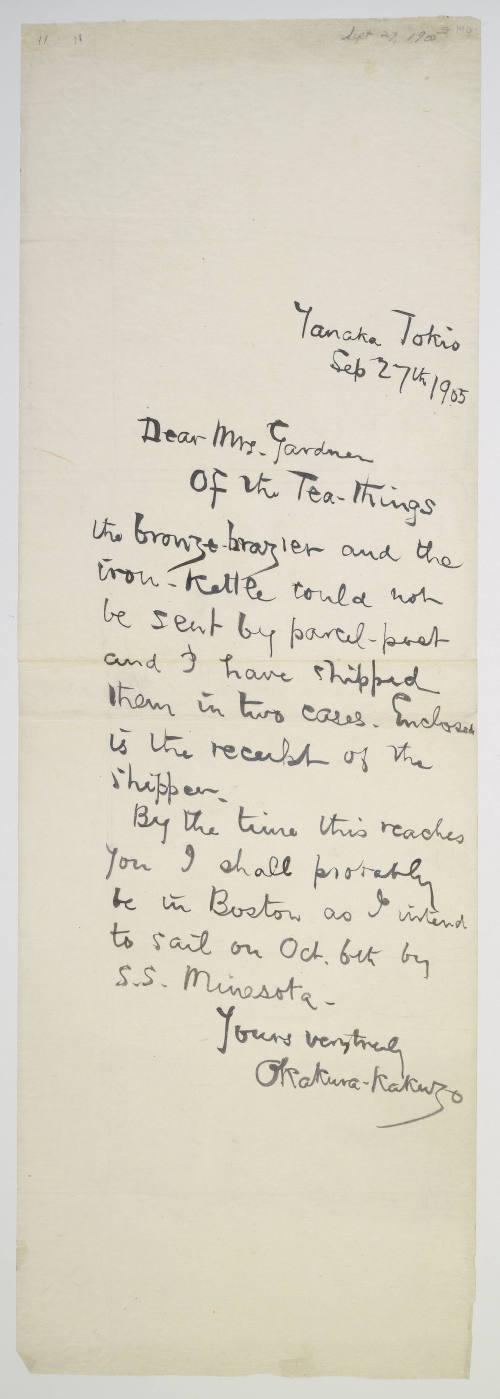 Sept 27, 1905
Yanaka Tokio
Sep 27th 1905
Dear Mrs. Gardner
Of the Tea-things
the bronze-brazier and the
iron-kettle could not
be sent by parcel-post
and I have shipped
them in two cases. Enclosed
is the receipt of the
shipper.
By the time this reaches
you I shall probably
be in Boston as I intend
to sail on Oct. 6th by
S.S. Minesota.
Yours very truly
Okakura-Kakuzo